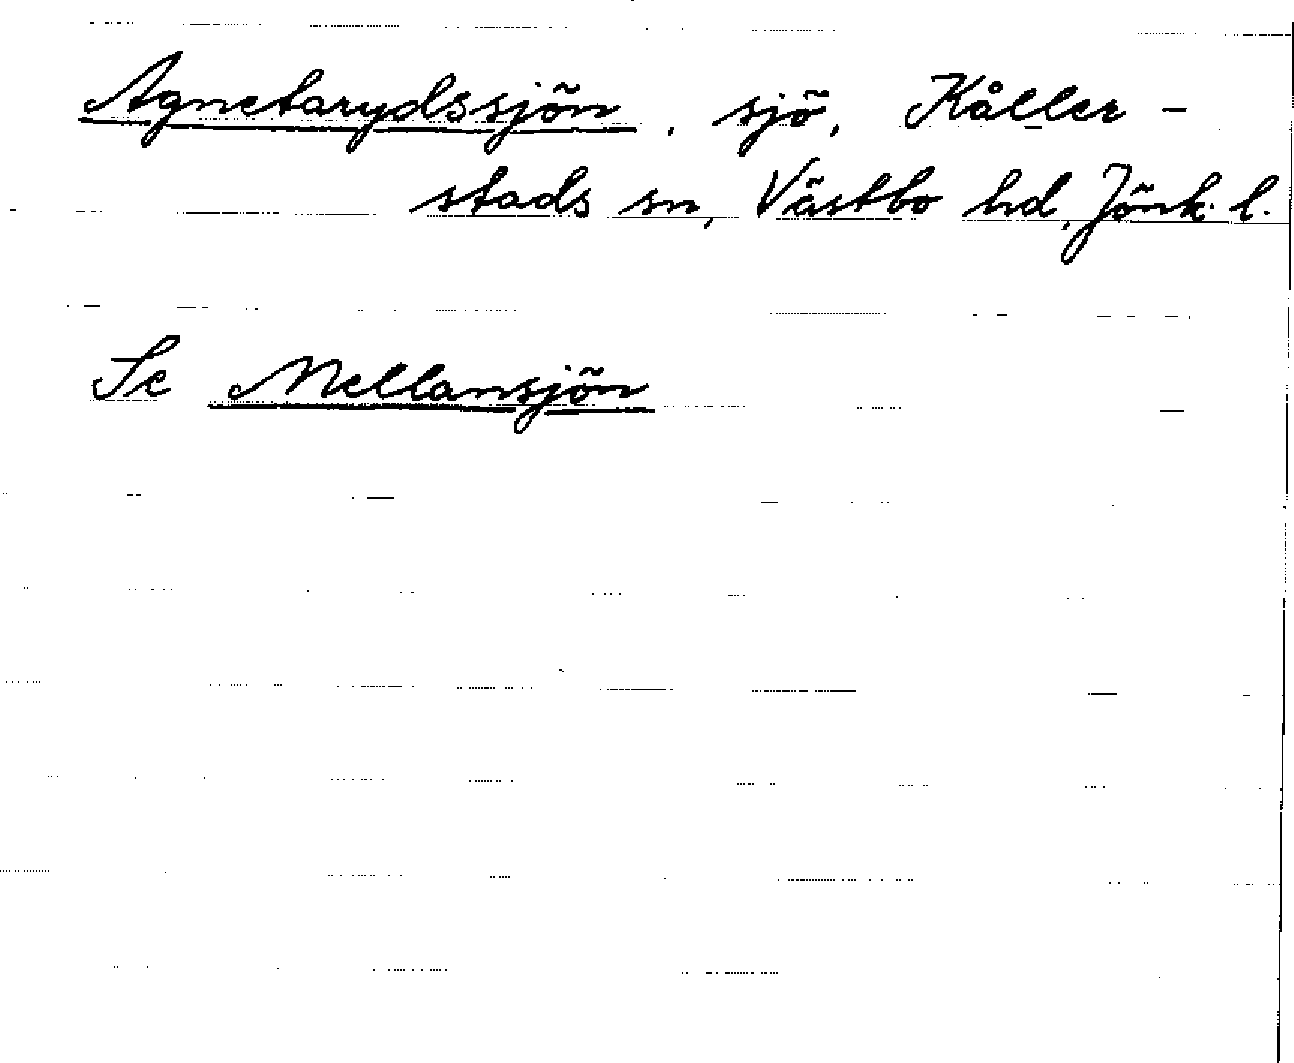 Agnetarydssjön, sjö, Kåller-
stads sn, Västbo hd, Jönk. l.
Se Mellansjön